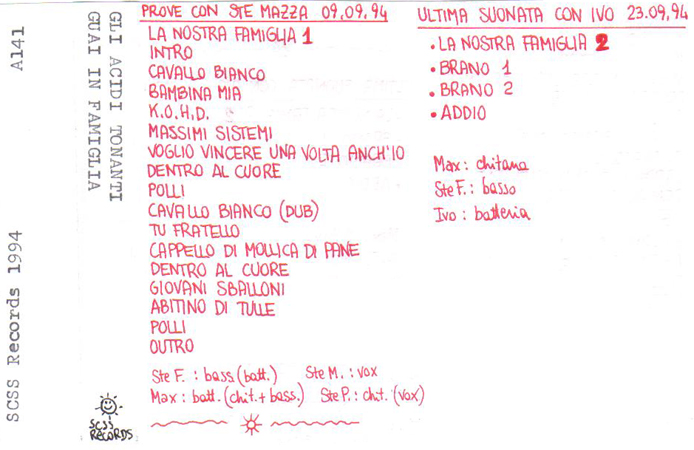 A141
SCSS Records 1994
GLI ACIDI TONANTI
GUAI IN FAMIGLIA
SCSS
RECORDS
PROVE CON STE MAZZA 09.09.94
LA NOSTRA FAMIGLIA 1
INTRO
CAVALLO BIANCO
BAMBINA MIA
K.O.H.D.
MASSIMI SISTEMI
VOGLIO VINCERE UNA VOLTA ANCH'IO
DENTRO AL CUORE
POLLI
CAVALLO BIANCO (DUB)
TU FRATELLO
CAPPELLO DI MOLLICA DI PANE
DENTRO AL CUORE
GIOVANI SBALLONI
ABITINO DI TULLE
POLLI
OUTRO
Ste F. : bass (batt.) Ste M. : vox
Max : batt. (chit. + bass.) Ste P. : chit. (vox)
ULTIMA SUONATA CON IVO 23.09.94
• LA NOSTRA FAMIGLIA 2
• BRANO 1
• BRANO 2
• ADDIO
Max : chitarra
Ste F. : basso
Ivo : batteria